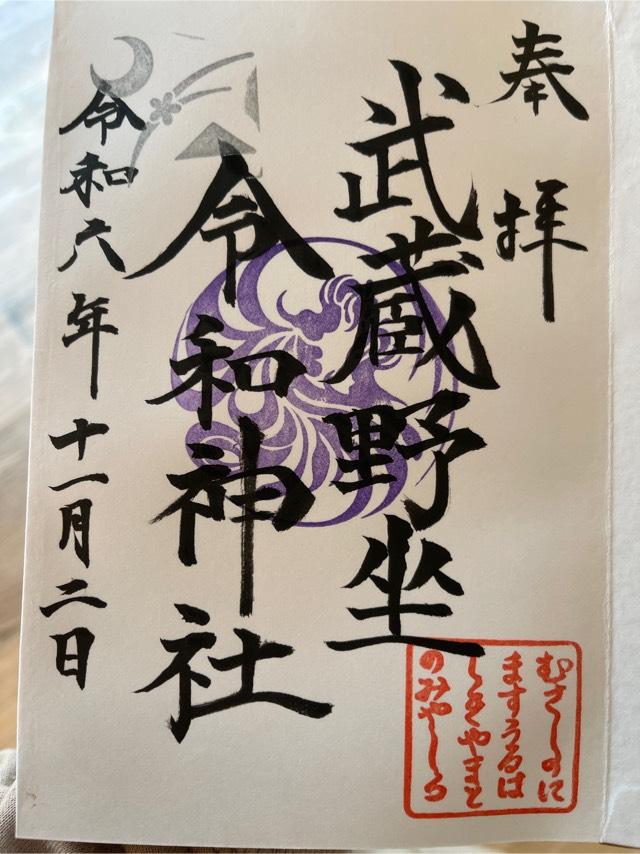 奉拝
武蔵野坐
令和神社
令和六年十一月二日
むさしのに
ますうるは
しきやまと
のみやしろ